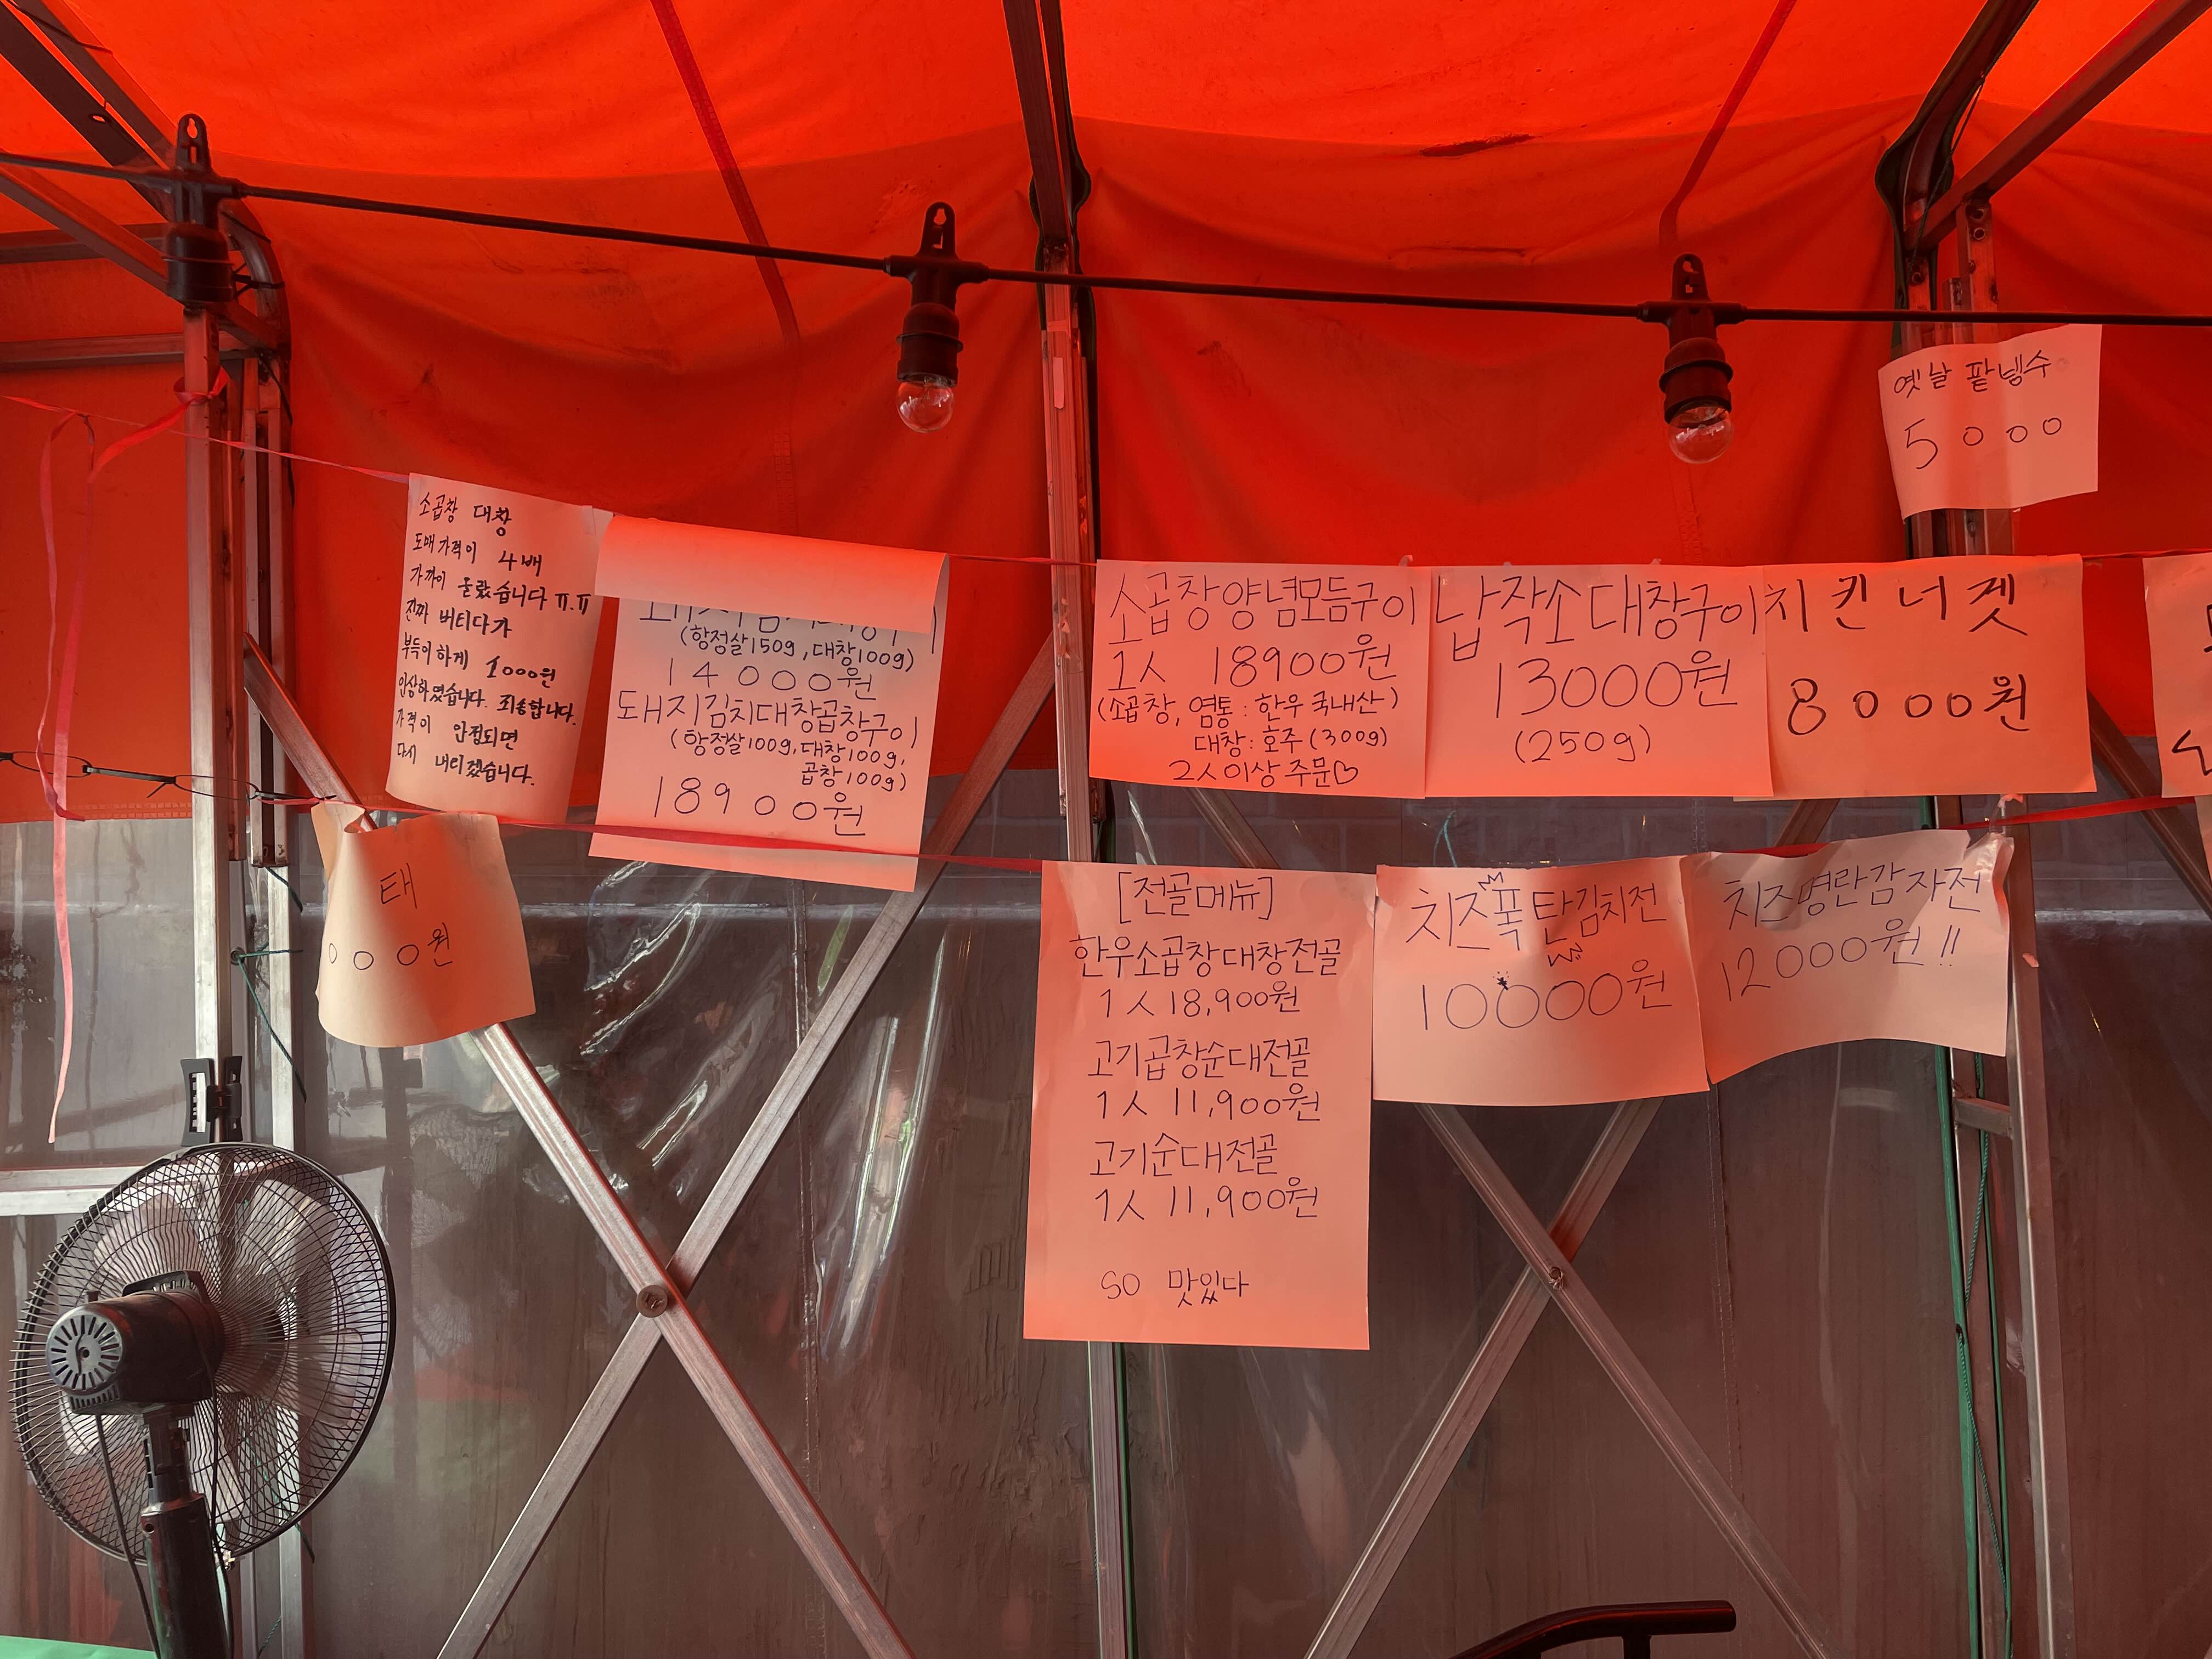 옛날 팥빙수
5000
소곱창 대창
도매가격이 4배
가까이 올랐습니다 ㅠ.ㅠ
진짜 버티다가
부득이하게 1000원
인상하였습니다. 죄송합니다.
가격이 안정되면
다시 내리겠습니다.
(항정살150g, 대창100g)
14000원
돼지김치대창곱창구이
(항정살100g, 대창100g,
곱창100g)
18900원
소곱창양념모듬구이
1人 18900원
(소곱창, 염통 : 한우 국내산)
대창 : 호주 (300g)
2人이상 주문♡
납작소대창구이
13000원
(250g)
치킨너겟
8000원
태
000원
[전골메뉴]
한우소곱창대창전골
1人 18,900원
고기곱창순대전골
1人 11,900원
고기순대전골
1人 11,900원
SO 맛있다
치즈폭탄김치전
10000원
치즈명란감자전
12000원!!